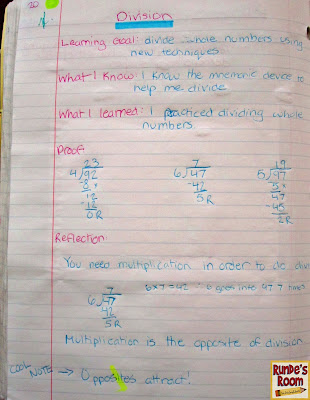 20
Division
Learning Goal: divide whole numbers using
new techniques.
What I Know: I know the mnemonic device to
help me divide
What I learned: I practiced dividing whole
numbers
Proof:
23 7 19
4)92 6)47 5)97
-8x -42 5x
12 5R 47
-12 -45
0R 2R
Reflection:
You need multiplication in order to do divi
7
6)47 6x7=42 ∴ 6 goes into 47 7 times
42
5R
Multiplication is the opposite of division
COOL NOTE → Opposites attract!
RUNDE'S
ROOM